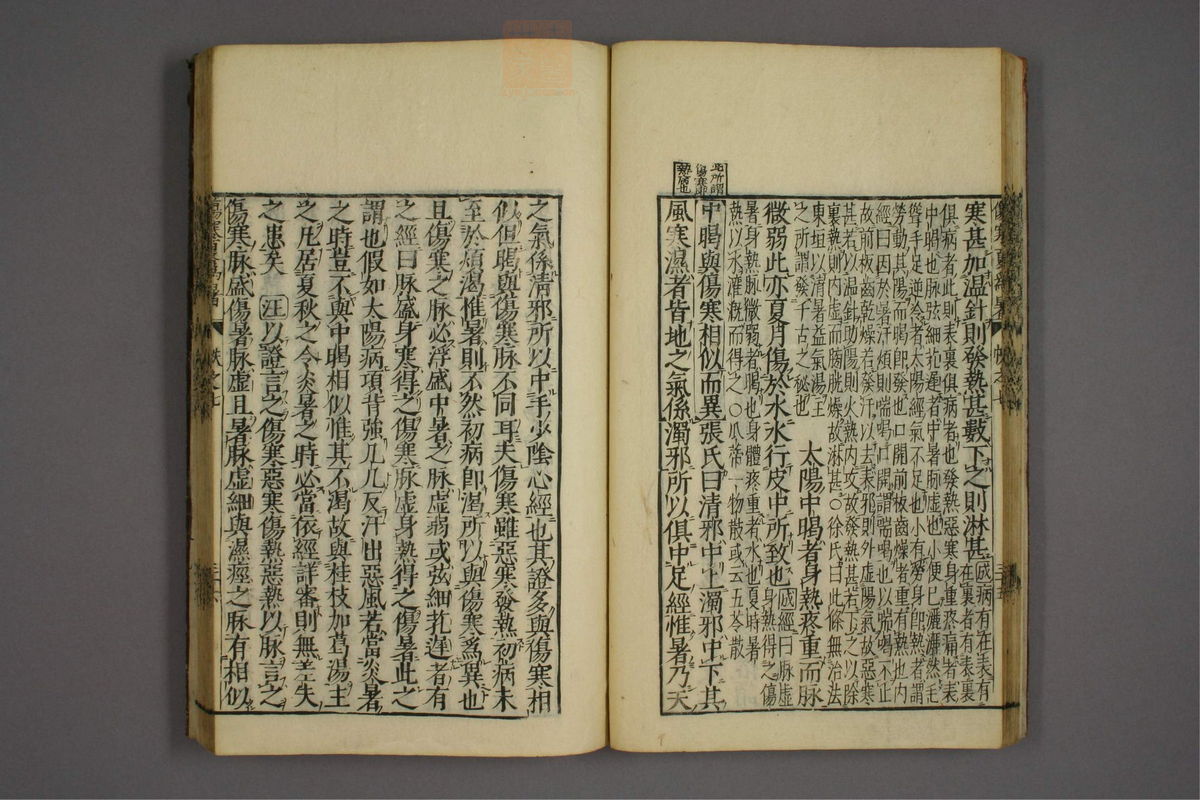 此所謂
傷寒即
熱病也
寒甚加温針則發熱甚數下之則淋甚成病有在表有
在裏者有表裏
俱病者此則表裏俱病者也發熱惡寒身重疼痛者表
中暍也脉弦細芤遲者中暑脉虚也小便已灑灑然毛
聳手足逆冷者太陽經氣不足也小有勞身即熱者謂
勞動其陽而暍即發也口開前板齒燥者重有熱也内
經曰因於暑汗煩則喘喝口開謂喘喝也以喘喝不止
故前板齒乾燥若發汗以去表邪則外虚陽氣故惡寒
甚若以温針助陽則火熱内攻故發熱甚若下之以除
裏熱則内虚而膀胱燥故淋甚〇徐氏曰此條無治法
東垣以清暑益氣湯主
之所謂發千古之秘也
太陽中暍者身熱疼重而脉
微弱此亦夏月傷於水水行皮中所致也成經曰脉虚
身熱得之傷
暑身熱脉微弱者暍也身體疼重者水也夏時暑
熱以水灌洗而得之〇瓜蒂一物散或云五苓散
中暍與傷寒相似而異張氏曰清邪中上濁邪中下其
風寒濕者皆地之氣係濁邪所以俱中足經惟暑乃天
之氣係清邪所以中手少陰心經也其證多與傷寒相
似但暍與傷寒脉不同耳夫傷寒雖惡寒發熱初病未
至於煩渴惟暑則不然初病即渴所以與傷寒爲異也
且傷寒之脉必浮盛中暑之脉虚弱或弦細芤遲者有
之經曰脉盛身寒得之傷寒脉虚身熱得之傷暑此之
謂也假如太陽病項背強几几反汗出惡風若當炎暑
之時豈不與中暍相似惟其不渴故與桂枝加葛湯主
之凡居夏秋之令炎暑之時必當依經詳審則無差失
之患矣 汪以證言之傷寒惡寒傷熱惡熱以脉言之
傷寒脉盛傷暑脉虚且暑脉虚細與濕痙之脉有相似